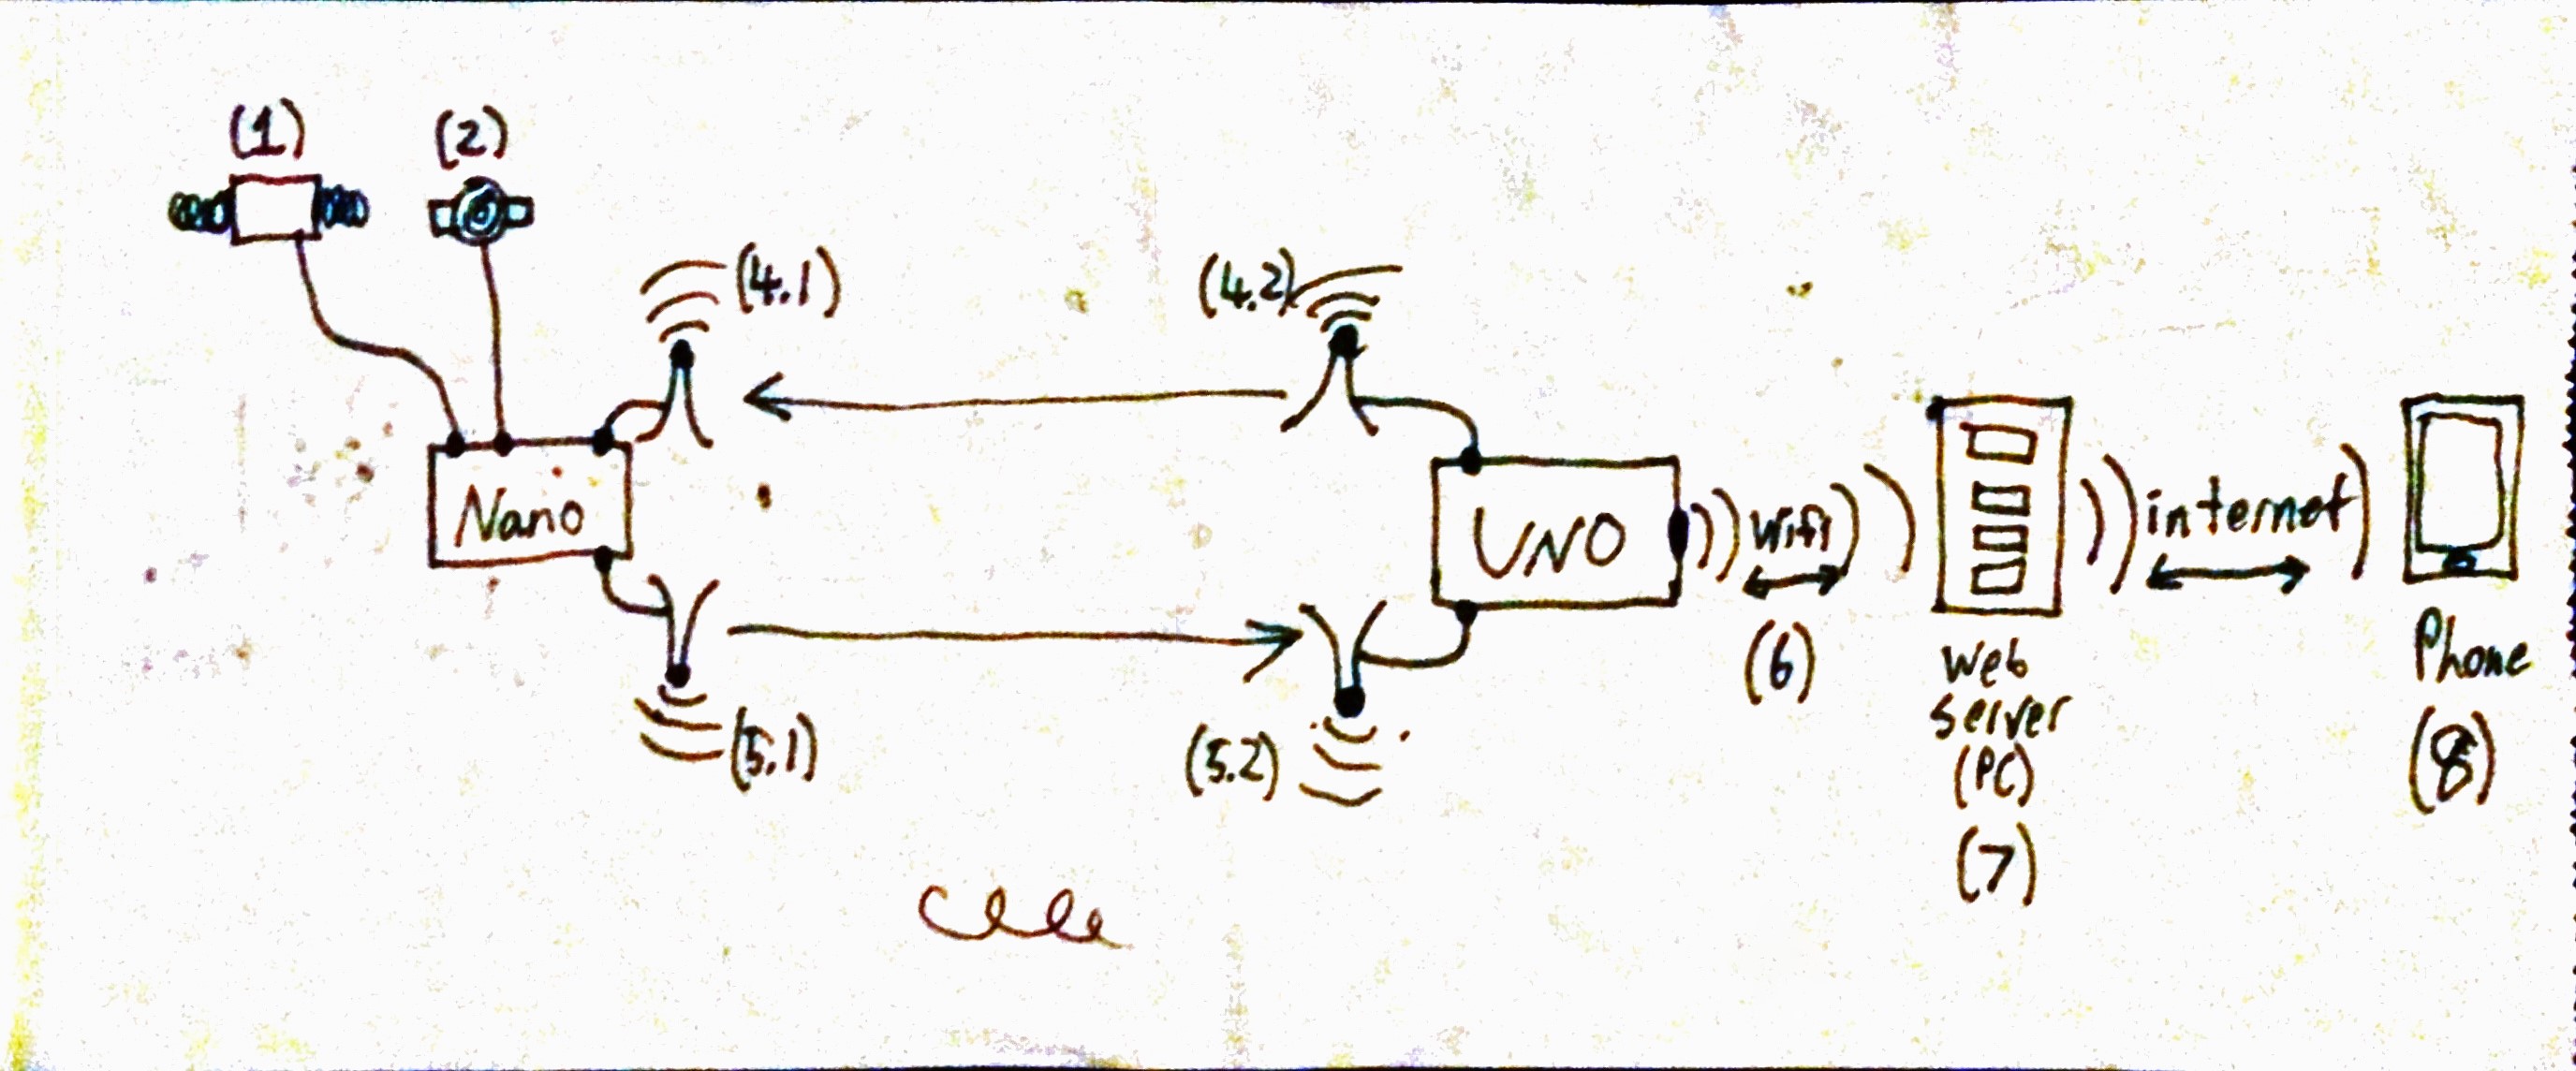 (1)
(2)
(4.1)
(4.2)
Nano
UNO
wifi
internet
(5.1)
(5.2)
(6)
web
server
(PC)
(7)
Phone
(8)